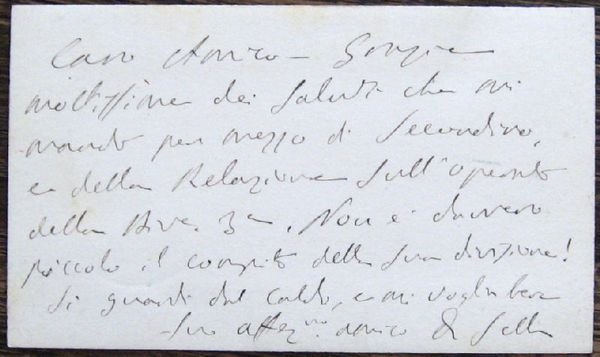 Caro Amico – Grazie
moltissime dei saluti che mi
mandò per mezzo di Secondino,
e della Relazione sull'operato
della Div. 3a. Non è davvero
piccolo il compito della sua divisione!
Si guardi dal caldo, e mi voglia bene
Suo affezmo amico Q Sella